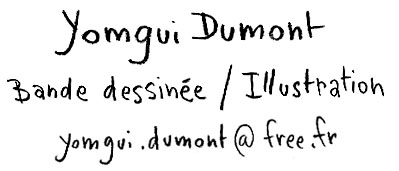 Yomgui Dumont
Bande dessinée / Illustration
yomgui.dumont@free.fr